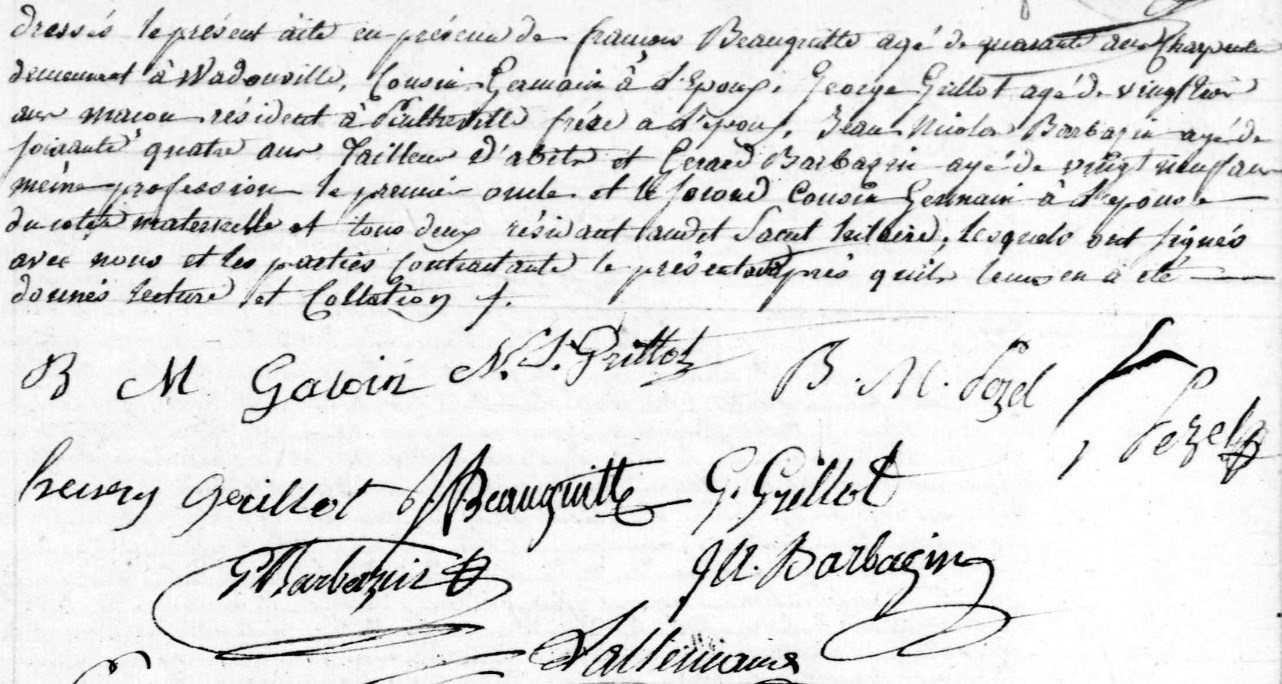 dressés le présent acte en présence de françois Beauguitte agé de quarante ans Charpentier
demeurant à Wadonville, Cousin Germain à l'Epoux, George Grillot agé de vingt trois
ans macon résident à frère a l'epoux, Jean Nicolas Barbazin agé de
soixante quatre ans Tailleur d'abits et Gerard Barbazin agé de vingt neuf ans
même profession le premier oncle et le second Cousin Germain à l'epouse
du cotée maternelle et tous deux résidant audit Saint hilaire, lesquels ont signés
avec nous et les parties Contractante le présent après quils leurs en a été
donnés lecture et Collation
B M Gavin N. S. Grillot B. M. Pezel
Pezel
henry Grillot f Beauguitte G. Grillot
G Barbazin J N. Barbazin
Lallemand